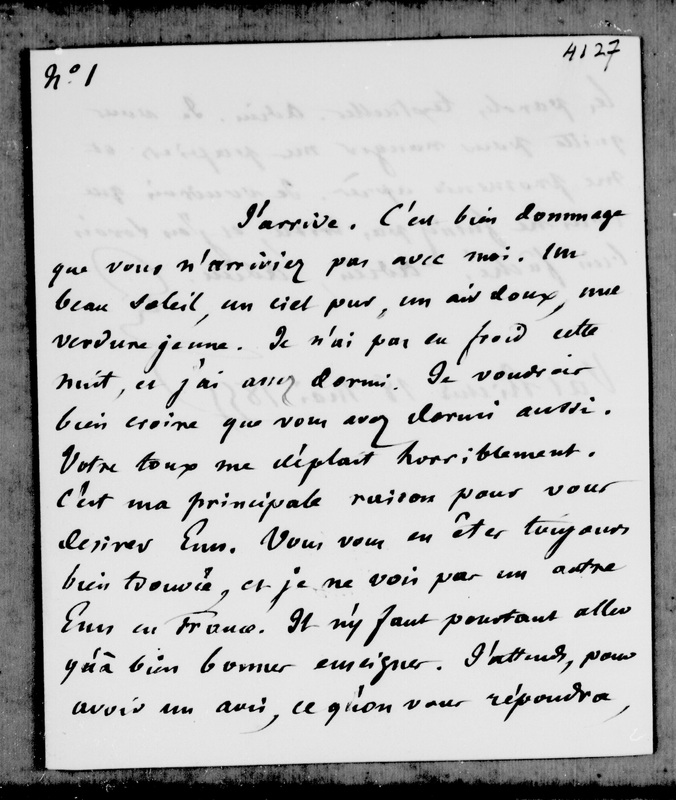 4127
N°. 1
J'arrive. C'est bien dommage
que vous n'arriviez pas avec moi. Un
beau soleil, un ciel pur, un air doux, une
verdure jeune. Je n'ai pas eu froid cette
nuit, et j'ai assez dormi. Je voudrois
bien croire que vous avez dormi aussi.
Votre toux me déplait horriblement.
C'est ma principale raison pour vous
desirer Ems. Vous vous en êtes toujours
bien trouvée, et je ne vois pas un autre
Ems en France. Il n'y faut pourtant aller
qu'à bien bonnes enseignes. J'attends, pour
avoir un avis, ce qu'on vous répondra,